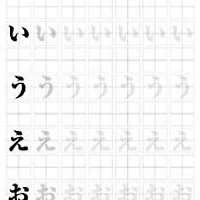 い い い い い い い
う う う う う う う
え え え え え え え
お お お お お お お